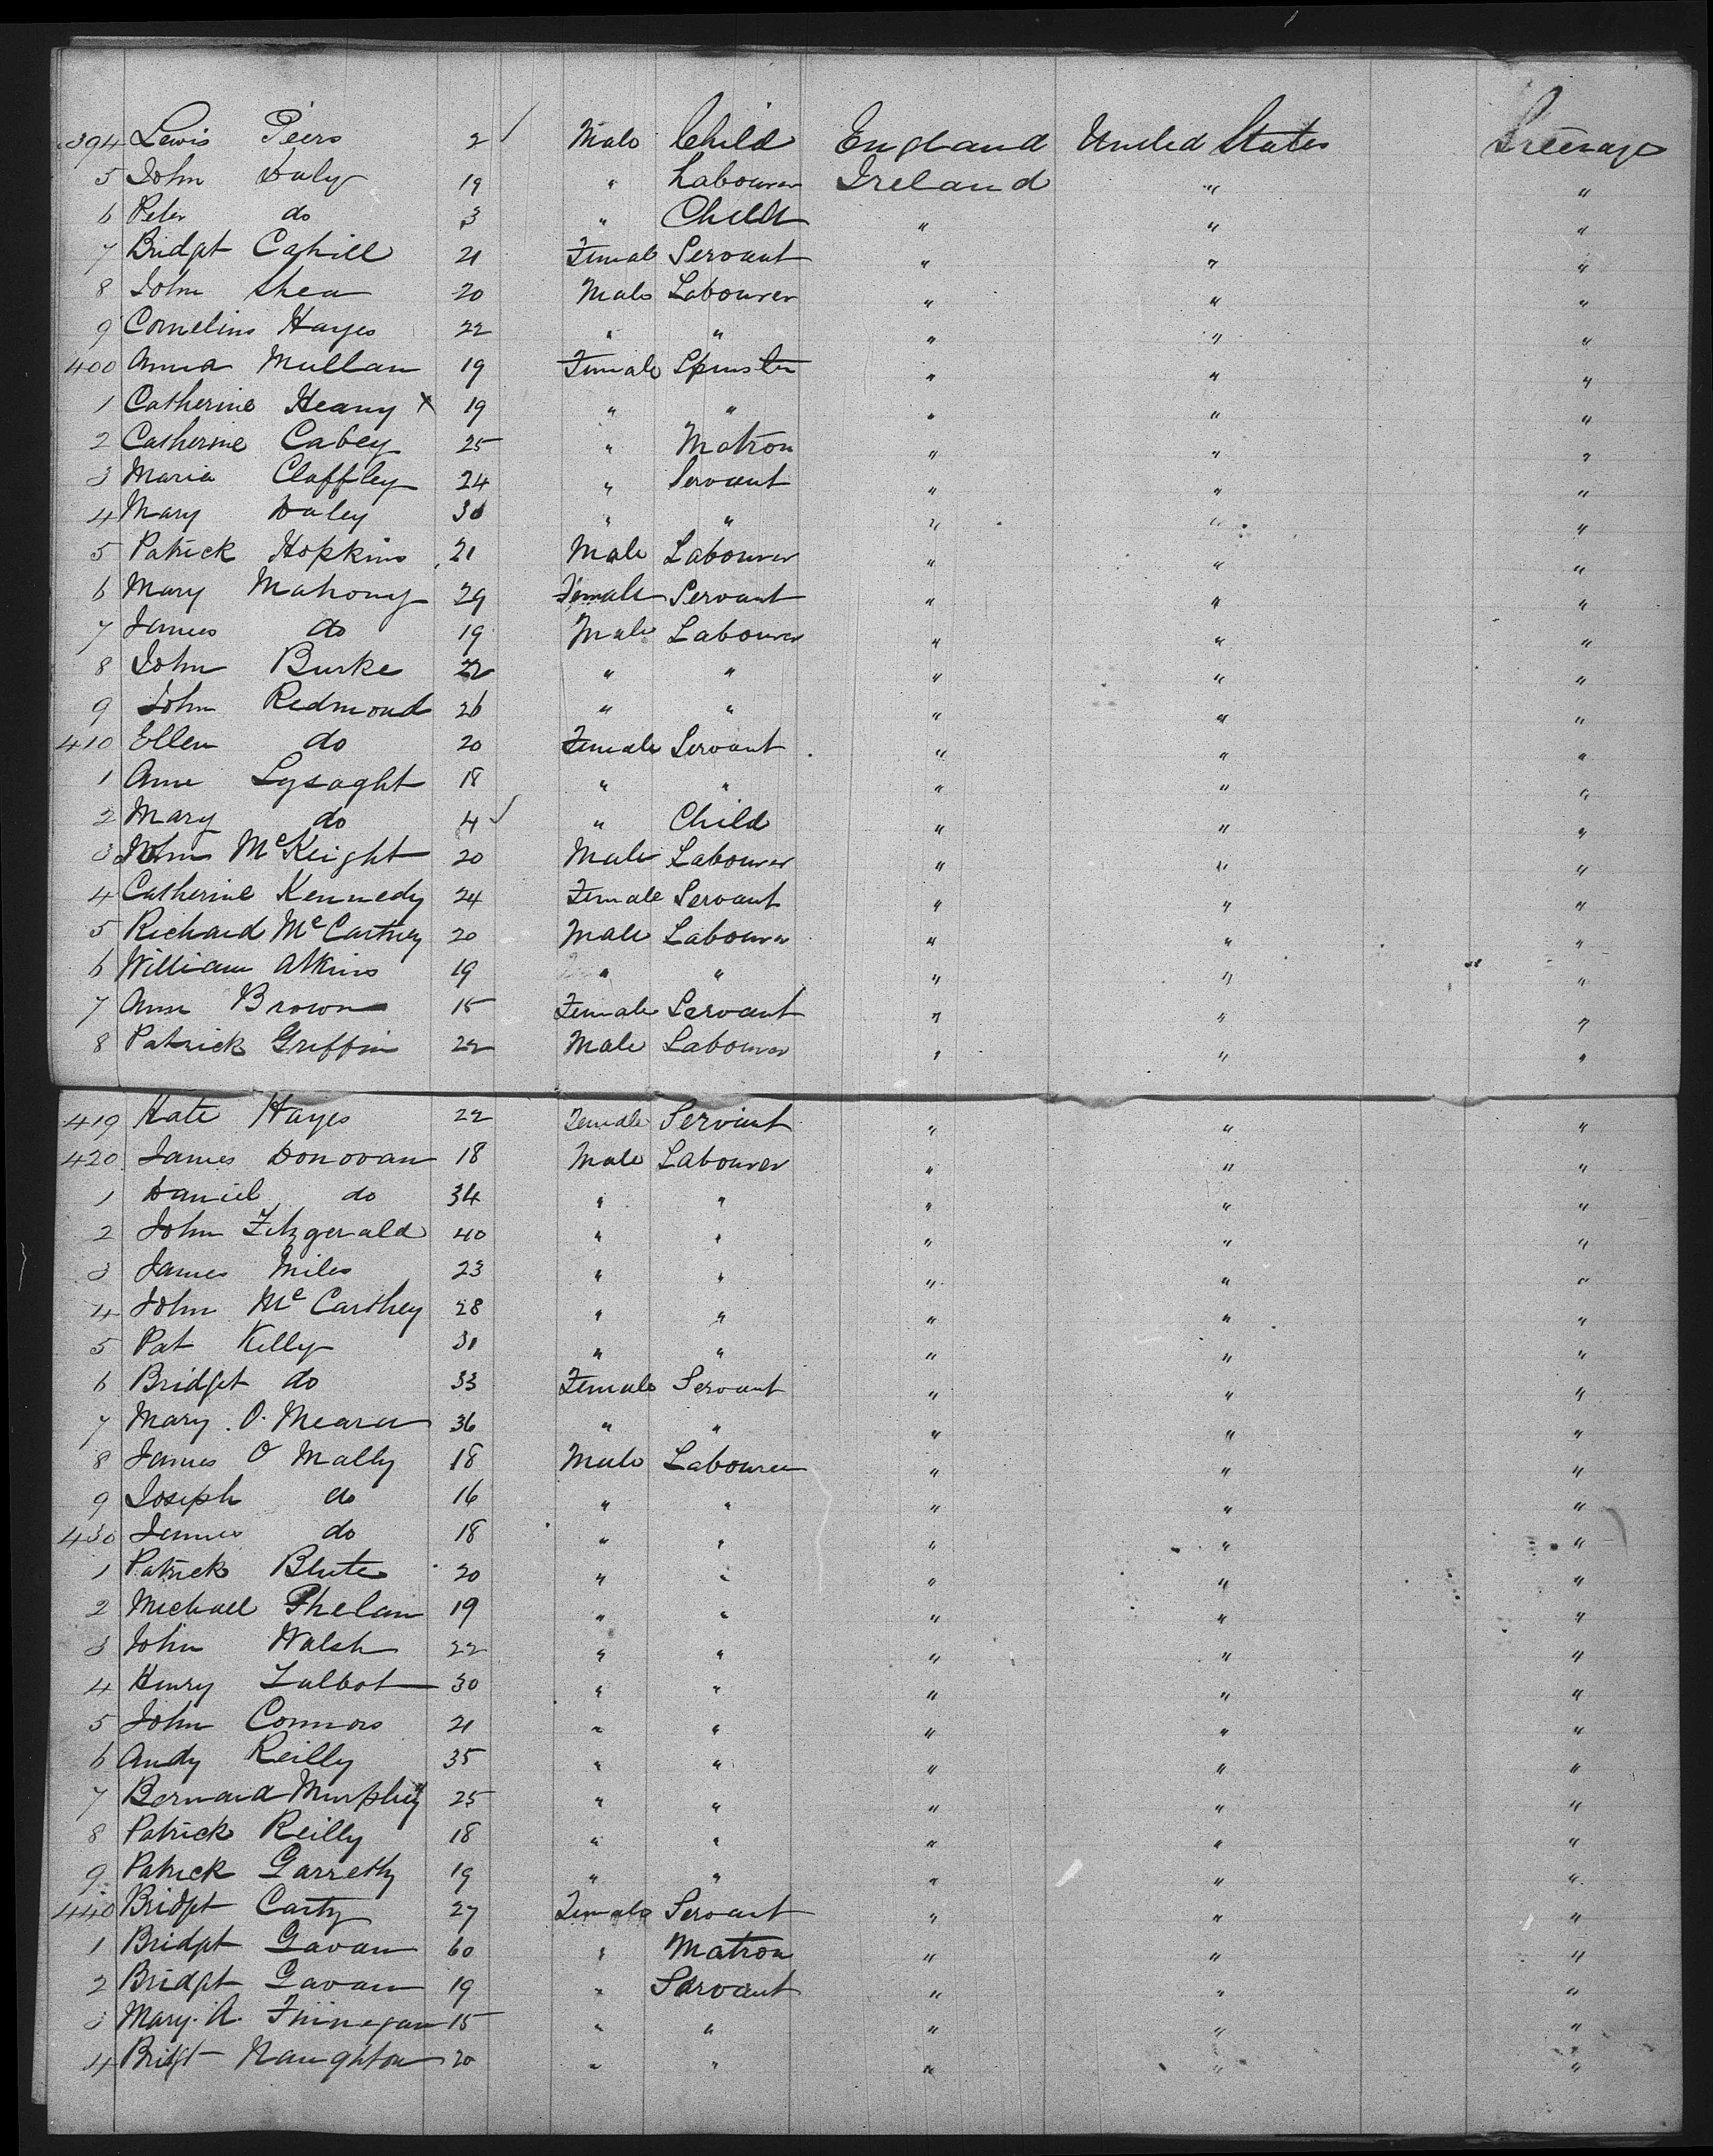 394 Lewis Peers 2 ✓ Male Child England United States Steerage
5 John Daly 19 " Labourer Ireland " "
6 Peter do 3 " Child " " "
7 Bridget Cahill 21 Female Servant " " "
8 John Shea 20 Male Labourer " " "
9 Cornelius Hayes 22 " " " " "
400 Anna Mullan 19 Female Spinster " " "
1 Catherine Heany x 19 " " " " "
2 Catherine Cabey 25 " Matron " " "
3 Maria Claffley 24 " Servant " " "
4 Mary Daley 30 " " " " "
5 Patrick Hopkins 21 Male Labourer " " "
6 Mary Mahony 29 Female Servant " " "
7 James do 19 Male Labourer " " "
8 John Burke 22 " " " " "
9 John Redmond 26 " " " " "
410 Ellen do 20 Female Servant " " "
1 Anne Lysaght 18 " " " " "
2 Mary do 4 ✓ " Child " " "
3 John McKeight 20 Male Labourer " " "
4 Catherine Kennedy 24 Female Servant " " "
5 Richard McCartney 20 Male Labourer " " "
6 William Atkins 19 " " " " "
7 Ann Brown 15 Female Servant " " "
8 Patrick Griffin 22 Male Labourer " " "
419 Kate Hayes 22 Female Servant " " "
420 James Donovan 18 Male Labourer " " "
1 Daniel do 34 " " " " "
2 John Fitzgerald 40 " " " " "
3 James Miles 23 " " " " "
4 John McCarthey 28 " " " " "
5 Pat Kelly 31 " " " " "
6 Bridget do 33 Female Servant " " "
7 Mary O. Meara 36 " " " " "
8 James O Mally 18 Male Labourer " " "
9 Joseph do 16 " " " " "
430 James do 18 " " " " "
1 Patrick Blute 20 " " " " "
2 Michael Phelan 19 " " " " "
3 John Walsh 22 " " " " "
4 Henry Talbot 30 " " " " "
5 John Connors 21 " " " " "
6 Andy Reilly 35 " " " " "
7 Bernard Murphy 25 " " " " "
8 Patrick Reilly 18 " " " " "
9 Patrick Garrethy 19 " " " " "
440 Bridget Carty 27 Female Servant " " "
1 Bridget Gavan 60 " Matron " " "
2 Bridget Gavan 19 " Servant " " "
3 Mary. A. Finnegan 15 " " " " "
4 Bridgt Naughton 20 " " " " "